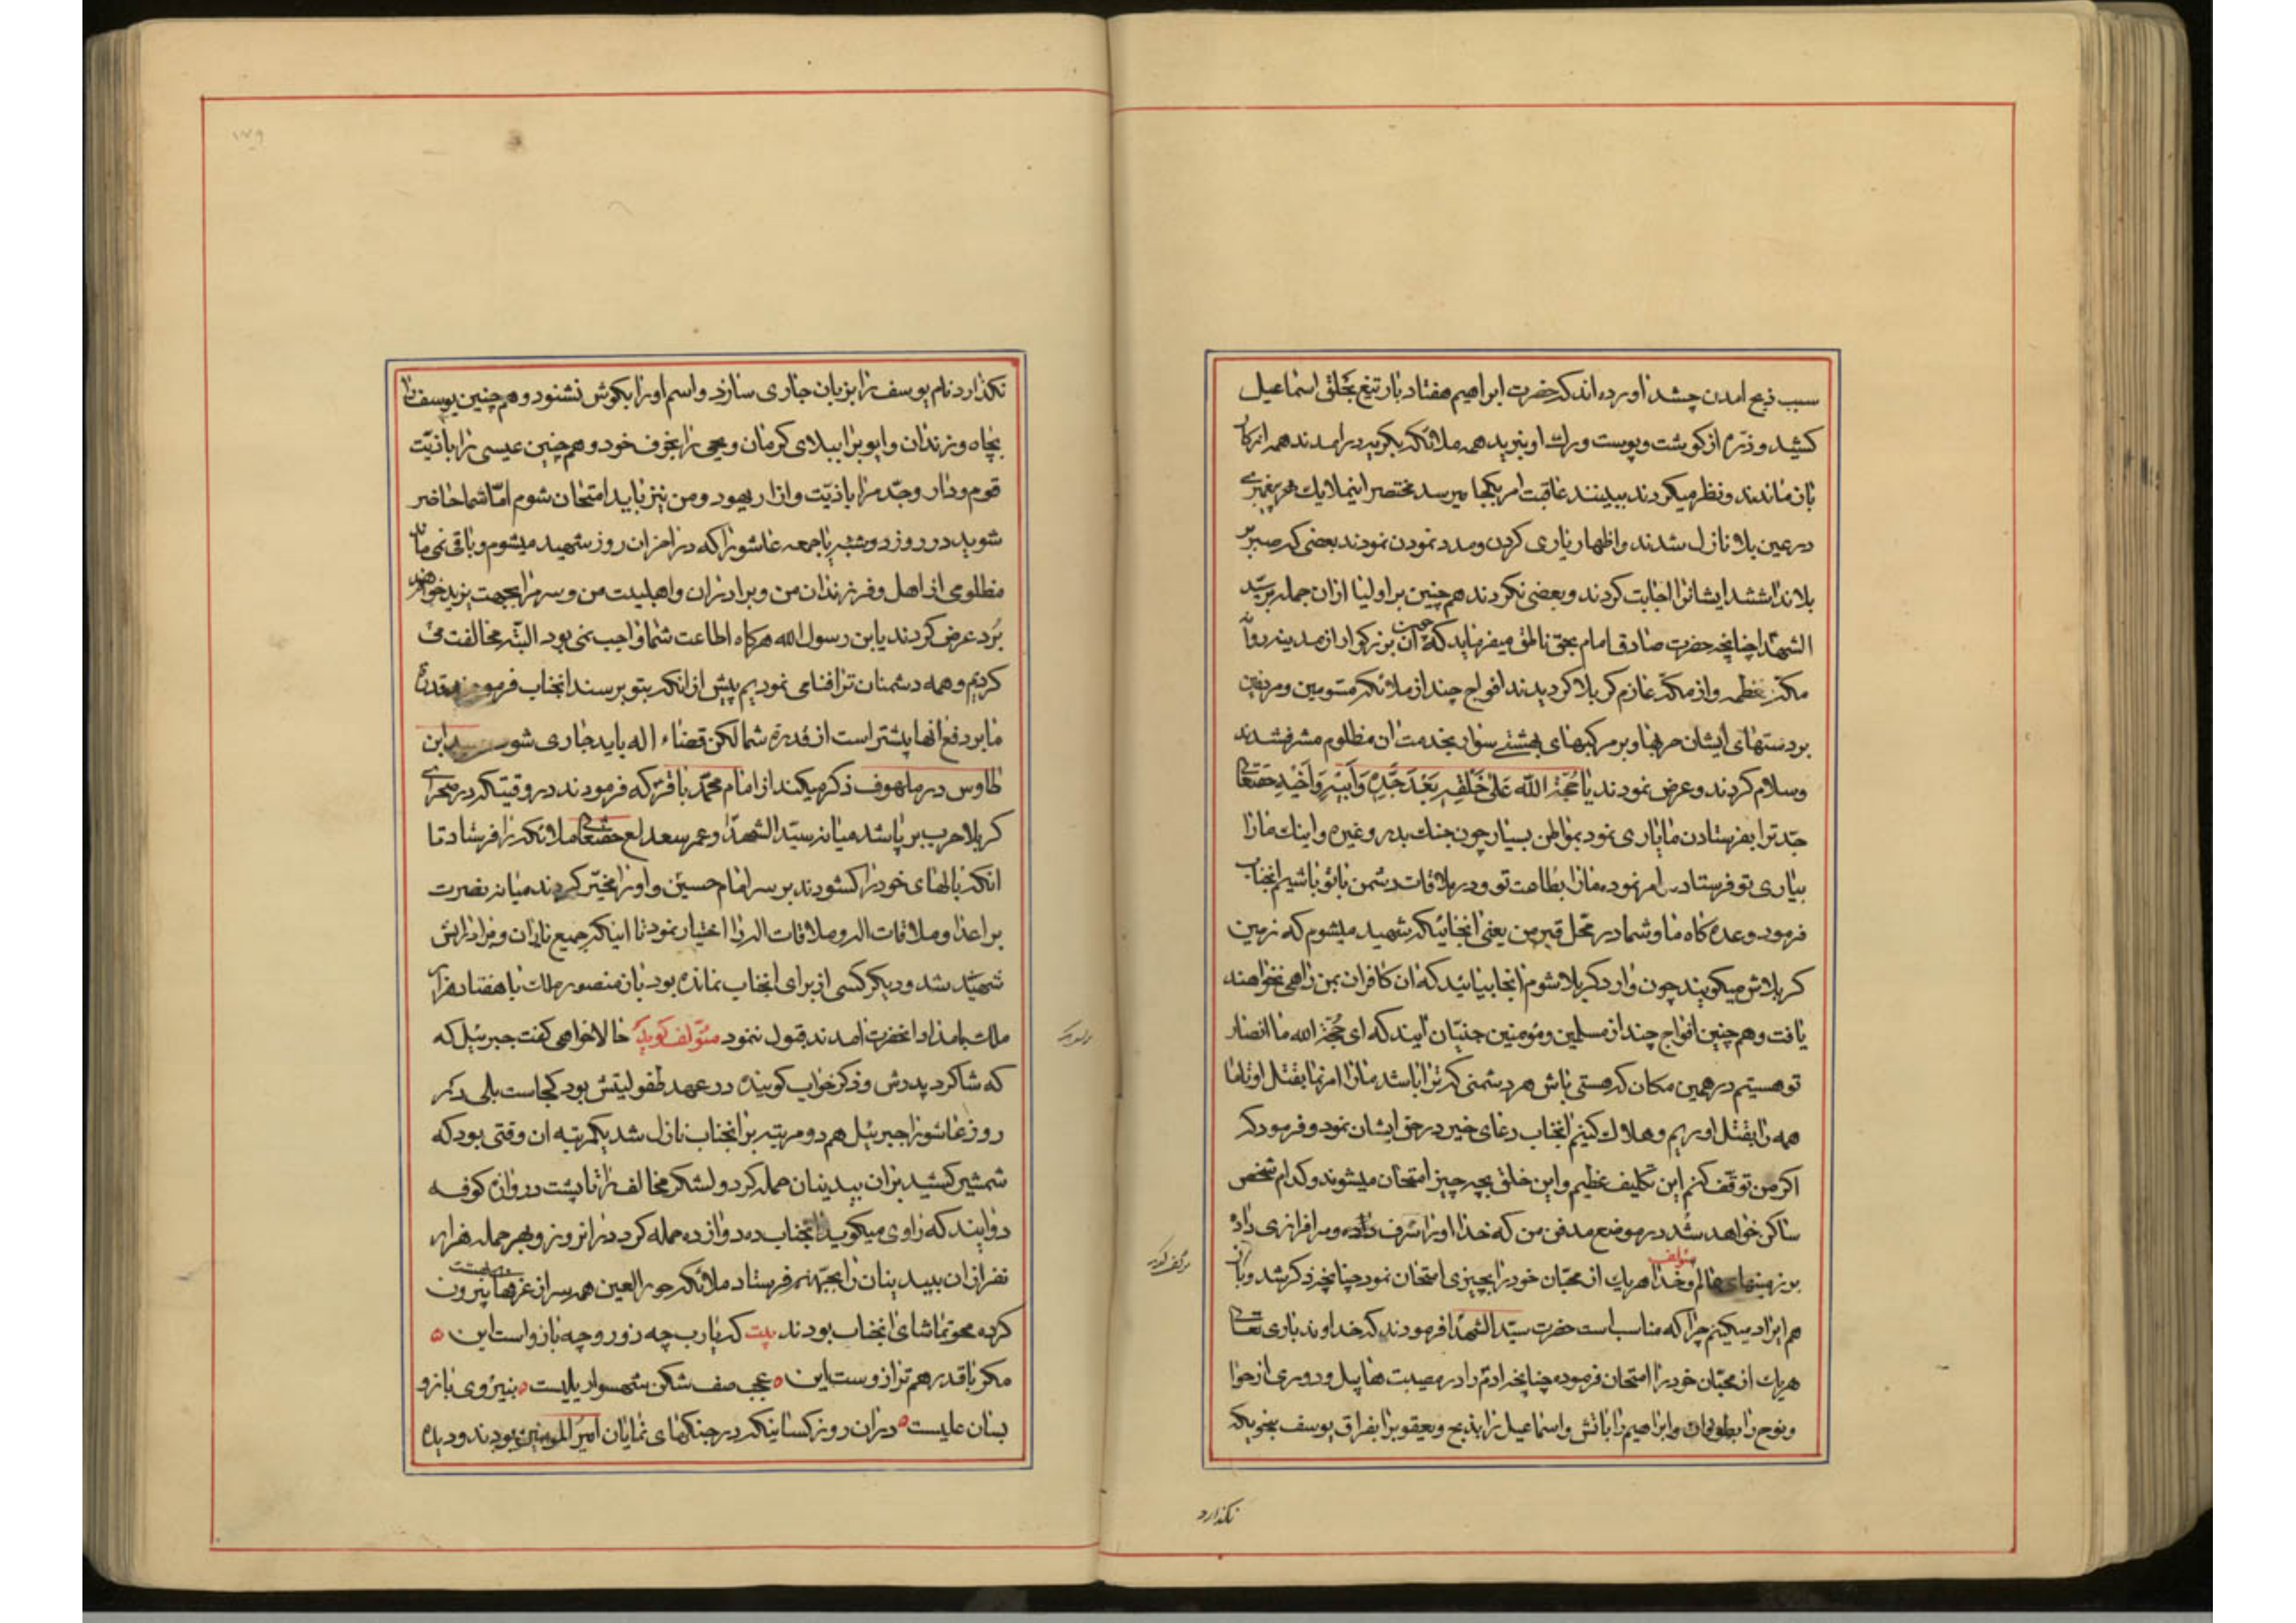 سبب ذبح امدن چشد اورده‌اند که حضرت ابراهیم هفتاد بار تیغ بحلق اسماعیل
کشید و ذره از کوشت و پوست و رك او نبرید همه ملائکه بکریه در امدند همه از کار
بان ماندند و نظر میکردند ببینند عاقبت امر بکجا میرسد مختصر اینملایك هر پیغمبری
در عین بلا نازل شدند و اظهار یاری کردن و مدد نمودن نمودند بعضی که صبر بر
بلا نداشتند ایشانرا اجابت کردند و بعضی نکردند هم چنین بر اولیا ازان جمله بر سید
الشهدا چنانچه حضرت صادق امام بحق ناطق میفرماید که چون آن بزرکوار از مدینه روانه
مکه معظمه و از مکه عازم کربلا کردیدند افواج چند از ملائکه مسومین و مردفین
بر دستهای ایشان حربها و بر مرکبهای بهشتی سوار بخدمت ان مظلوم مشرف شدند
وسلام کردند و عرض نمودند یا حُجَّةَ اللّه عَلیٰ خَلْقِهِ بَعْدَ جَدِّهِ وَاَبیٖهِ وَاَخیٖهِ حقتعالی
جد ترا بفرستادن ما یاری نمود بمواطن بسیار چون جنك بدر و غیره و اینك مارا
بیاری تو فرستاد امر نموده مارا بطاعت تو و در ملاقات دشمن با تو باشیم انجناب
فرمود وعده کاه ما و شما در محل قبر من یعنی انجائیکه شهید میشوم که زمین
کربلاش میکویند چون وارد کربلا شوم انجا بیائید که ان کافران بمن راهی نخواهند
یافت و هم چنین افواج چند از مسلمین و مؤمنین جنیان ایند که ای حُجّة الله ما انصار
تو هستیم در همین مکان که هستی باش هر دشمنی که ترا باشد مارا امر نما بقتل او تا ما
همه را بقتل اوریم و هلاك کنیم انجناب دعای خیر در حق ایشان نمود و فرمود که
اکر من توقف کنم این تکلیف عظیم و این خلق بچه چیز امتحان میشوند و کدام شخص
ساکن خواهد شد در موضع مدفن من که خدا او را شرف داده و سرافرازی داده
مؤلف
بر زمینهای عالم و خدا هریك از محبان خود را بچیزی امتحان نمود چنانچه ذکر شد و باز
هم ایراد میکنیم چرا که مناسب است حضرت سید الشهدا فرمودند که خداوند باری تعالی
هریك از محبان خود را امتحان فرموده چنانچه ادم را در مصیبت هابیل و دوری از حوا
و نوح را بطوفان و ابراهیم را باتش و اسماعیل را بذبح و یعقوبرا بفراق یوسف بنحویکه
نکذارد
نکذارد نام یوسف را بزبان جاری سازد و اسم اورا بکوش نشنود و هم چنین یوسف را
بچاه و زندان و ایوبرا ببلای کرمان و یحیی را بخوف خود و هم چنین عیسی را باذیّت
قوم و دار و جد مرا باذیّت و ازار یهود و من نیز باید امتحان شوم امّا شما حاضر
شوید در روز دوشنبه یا جمعه عاشورا که در اخر ان روز شهید میشوم و باقی نمی ماند
مظلومی از اهل و فرزندان من و برادران و اهلبیت من و سر مرا بجهت یزید خواهند
بُرد عرض کردند یابن رسول الله هرکاه اطاعت شما واجب نمی بود البتّه مخالفت می
کردیم و همه دشمنان ترا فنا می نمودیم پیش از انکه بتو برسند انجناب فرمودند قدرة
ما بر دفع انها بیشتر است از قدرة شما لکن قضاء اله باید جاری شود سید ابن
طاوس در ملهوف ذکر میکند از امام محمد باقر که فرمودند در وقتیکه در صحرای
کربلا حرب بر پا شد میانه سیّد الشهدا و عمر سعد لع حقتعالی ملائکه را فرستاد تا
انکه بالهای خود را کشودند بر سر امام حسین و او را مخیّر کردند میانه نصرت
بر اعدا و ملاقات الله و ملاقات الله را اختیار نمود تا اینکه جمیع یاران و برادرانش
شهید شد و دیکر کسی از برای انجناب نمانده بود بان منصور ملك با هفتاد هزار
ملك بامداد انحضرت امدند قبول ننمود مؤلف کوید حالا خواهی کفت جبرئیل که
که شاکرد پدرش و ذکر خواب کوینده در عهد طفولیتش بود کجاست بلی در
روز عاشورا جبرئیل هم دو مرتبه بر انجناب نازل شد یکمرتبه ان وقتی بود که
شمشیر کشید بران بیدینان حمله کرد و لشکر مخالف را تا پشت دروازه کوفه
دوانید که راوی میکوید انجناب ده دوازده حمله کرد در انروز و بهر حمله هزار
نفر ازان بیدینان را بجهنم فرستاد ملائکه حور العین همه سر از غرفها بیرون
کرده محو تماشای انجناب بودند بیت که یارب چه زور و چه بازو است این
مکر با قدر هم ترازوست این عجب صف شکن شهسوار یلیست بنیروی بازو
بسان علیست دران روز کسانیکه در جنکهای نمایان امیر المؤمنین بودند و دیده